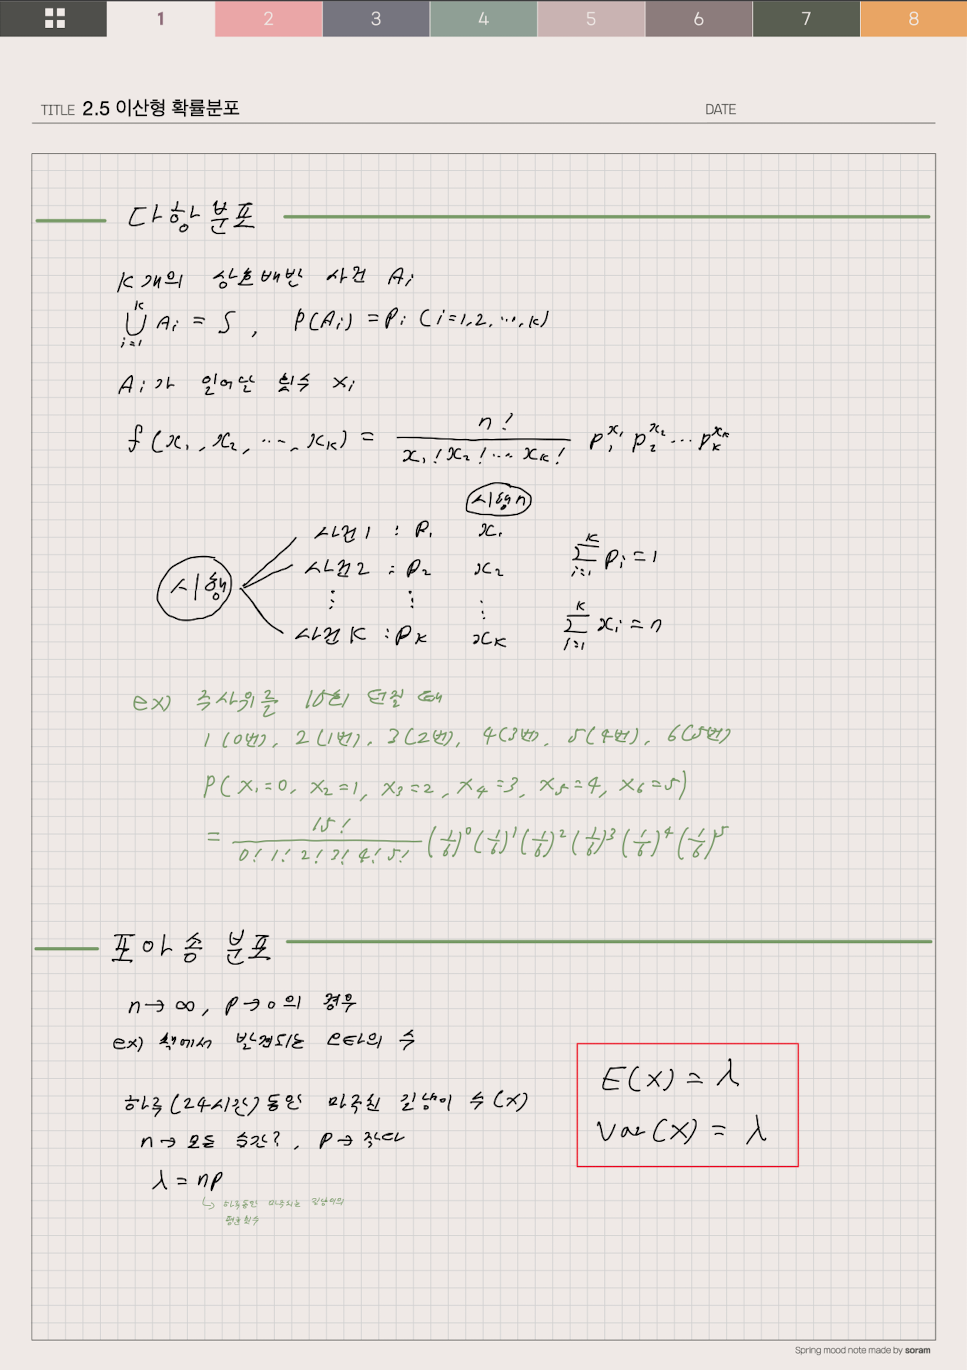 1 2 3 4 5 6 7 8
TITLE 2.5 이산형 확률분포 DATE
다항 분포
K개의 상호배반 사건 Ai
⋃_{i=1}^{K} Ai = S, P(Ai) = Pi (i=1,2,…,K)
Ai가 일어난 횟수 Xi
f(x₁, x₂, …, x_K) = n! / (x₁! x₂! … x_K!) p₁^{x₁} p₂^{x₂} … p_K^{x_K}
시행n
사건1 : P₁ x₁
시행 사건2 : P₂ x₂ ∑_{i=1}^{K} Pi = 1
⋮ ⋮ ⋮
사건K : P_K x_K ∑_{i=1}^{K} xi = n
ex) 주사위를 10회 던질 때
1(0번), 2(1번), 3(2번), 4(3번), 5(4번), 6(5번)
P(X₁=0, X₂=1, X₃=2, X₄=3, X₅=4, X₆=5)
= 15! / (0! 1! 2! 3! 4! 5!) (1/6)⁰ (1/6)¹ (1/6)² (1/6)³ (1/6)⁴ (1/6)⁵
포아송 분포
n→∞, p→0의 경우
ex) 책에서 발견되는 오타의 수
하루(24시간)동안 마주친 길냥이 수(X)
n→ 모든 순간?, p→ 작다
λ = np
↳ 하루동안 마주치는 길냥이의
평균횟수
E(X) = λ
Var(X) = λ
Spring mood note made by soram